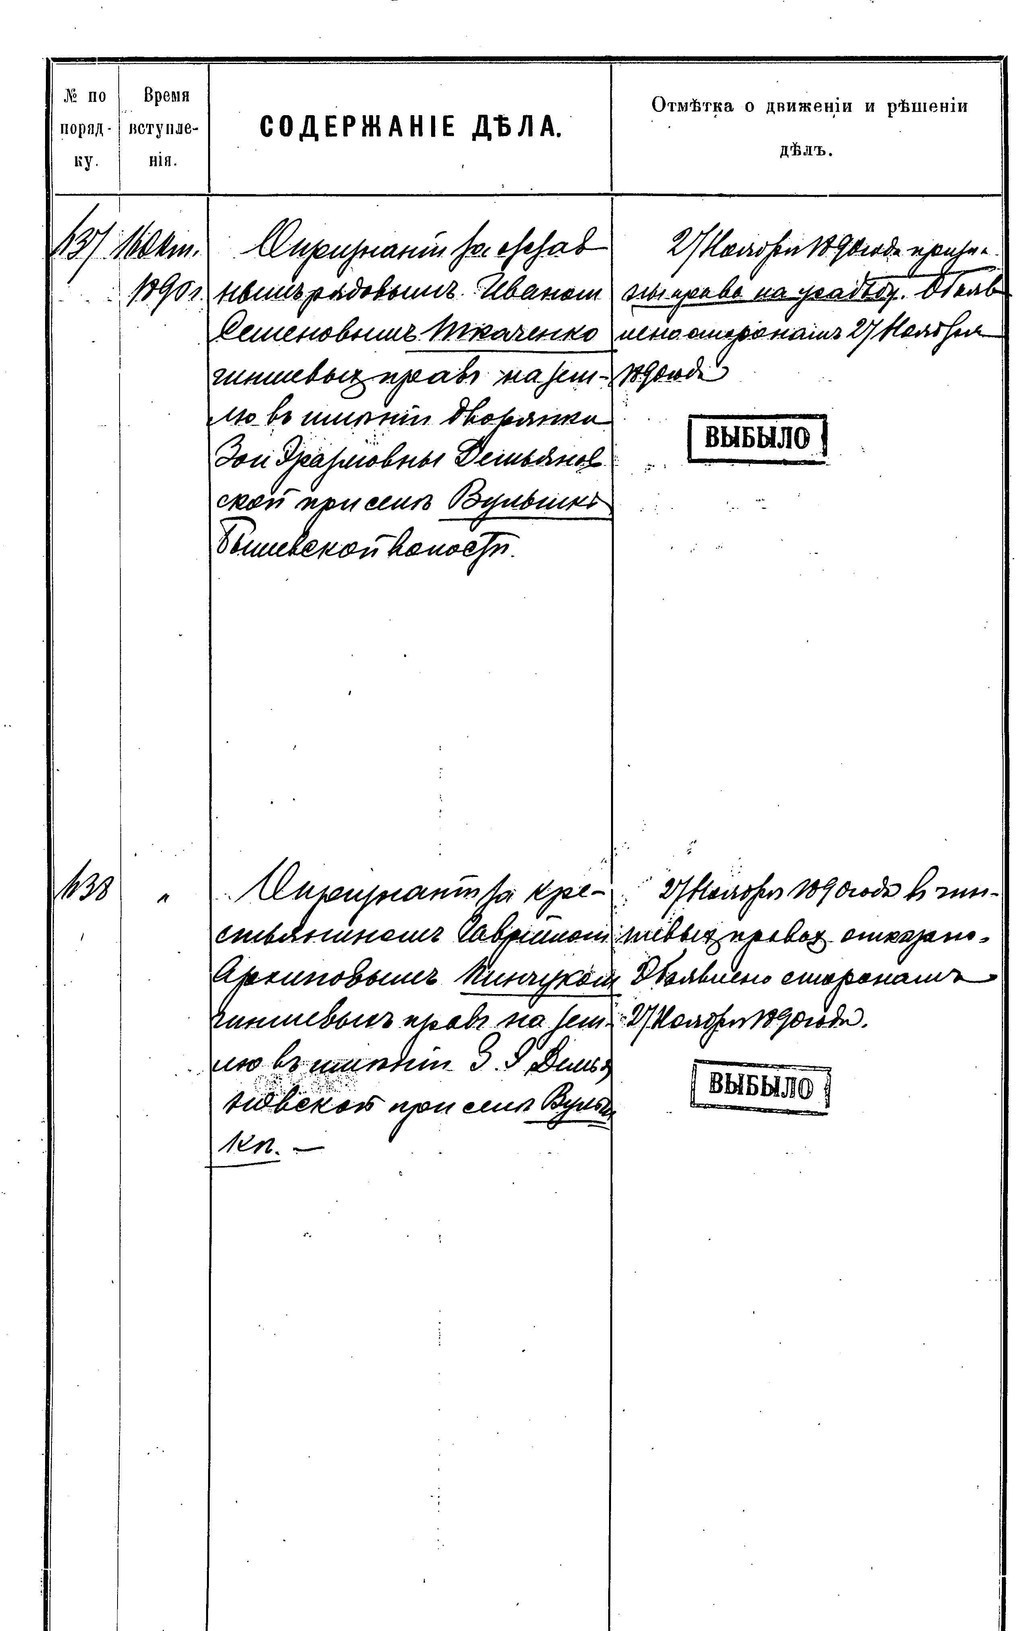 № по поряд- ку.
Время вступле- нія.
СОДЕРЖАНІЕ ДѢЛА.
Отмѣтка о движеніи и рѣшеніи
дѣлъ.
637
16 Окт.
1890 г.
О признаніи за отстав
нымъ рядовымъ Иваномъ
Семеновымъ Ткаченко
чиншевыхъ правъ на зем-
лю въ имѣніи дворянки
Зои Демьянов
ской при селѣ Вульшкѣ
волости.
27 Ноября 1890 года призна-
ны права на усадьбу. Объяв
лено сторонамъ 27 Ноября
1890 года
ВЫБЫЛО
638
"
О признаніи за кре-
стьяниномъ Гавріиломъ
Архиповымъ Пинчукомъ
чиншевыхъ правъ на зем-
лю въ имѣніи З. Демья
новской при селѣ
кѣ. —
27 Ноября 1890 года въ чин-
шевыхъ правах отказано.
Объявлено сторонамъ
27 Ноября 1890 года.
ВЫБЫЛО